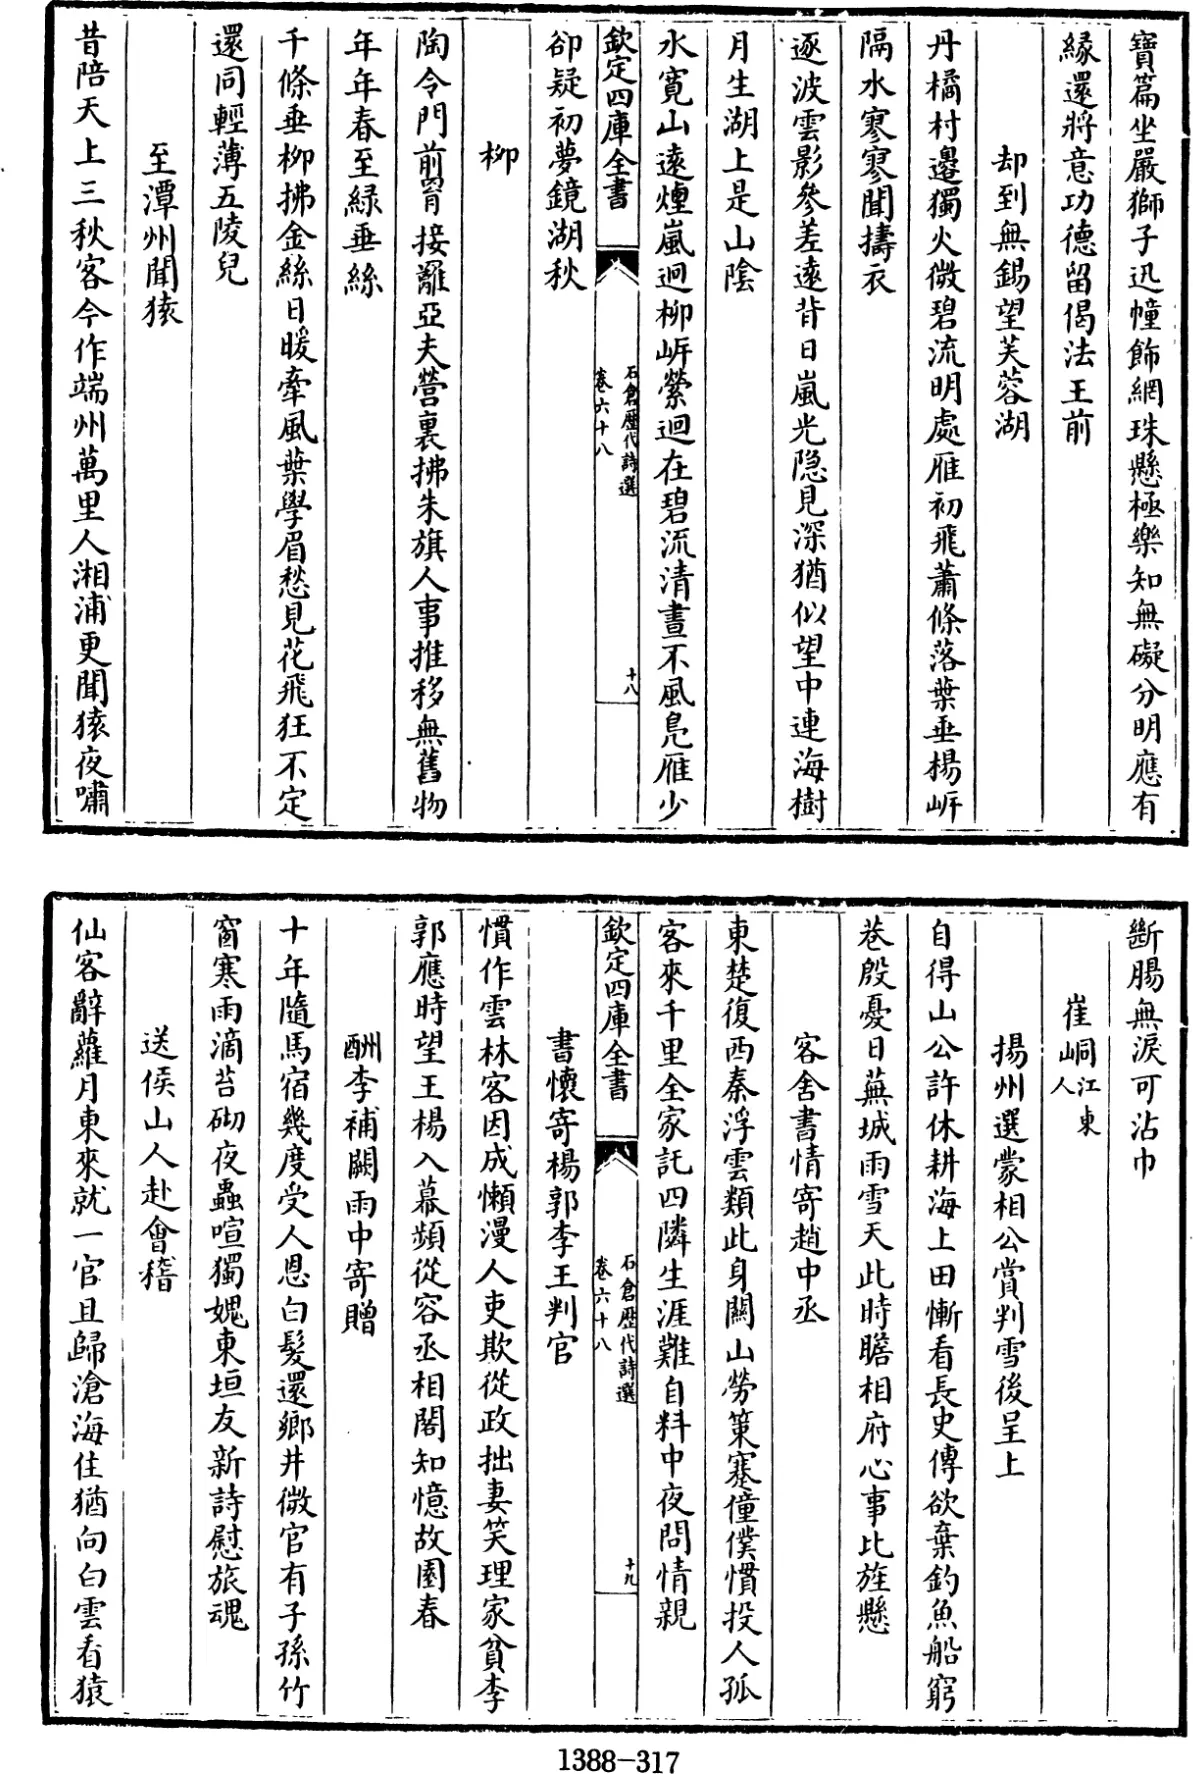 寶篇坐嚴獅子迅幢飾網珠懸極樂知無礙分明應有
緣還將意功德留偈法王前
却到無錫望芙蓉湖
丹橘村邊獨火微碧流明處雁初飛蕭條落葉垂楊岍
隔水寥寥聞擣衣
逐波雲影參差遠背日嵐光隠見深猶似望中連海樹
月生湖上是山陰
水寛山遠煙嵐迥柳岍縈迴在碧流清晝不風鳬雁少
欽定四庫全書
石倉歷代詩選
卷六十八
十八
卻疑初夢鏡湖秋
柳
陶令門前罥接䍦亞夫營裏拂朱旗人事推移無舊物
年年春至綠垂絲
千條垂柳拂金絲日暖牽風葉學眉愁見花飛狂不定
還同輕薄五陵兒
至潭州聞猿
昔陪天上三秋客今作端州萬里人湘浦更聞猿夜嘯
斷腸無淚可沾巾
崔峒江東人
揚州選蒙相公賞判雪後呈上
自得山公許休耕海上田慚看長史傳欲棄釣魚船窮
巷殷憂日蕪城雨雪天此時瞻相府心事比旌懸
客舍書情寄趙中丞
東楚復西秦浮雲類此身關山勞策蹇僮僕慣投人孤
客來千里全家託四隣生涯難自料中夜問情親
欽定四庫全書
石倉歷代詩選
卷六十八
十九
書懷寄楊郭李王判官
慣作雲林客因成懶漫人吏欺從政拙妻笑理家貧李
郭應時望王楊入幕頻從容丞相閣知憶故園春
酬李補闕雨中寄贈
十年隨馬宿幾度受人恩白髮還鄉井微官有子孫竹
窗寒雨滴苔砌夜蟲喧獨媿東垣友新詩慰旅魂
送侯山人赴會稽
仙客辭蘿月東來就一官且歸滄海住猶向白雲看猿
1388-317